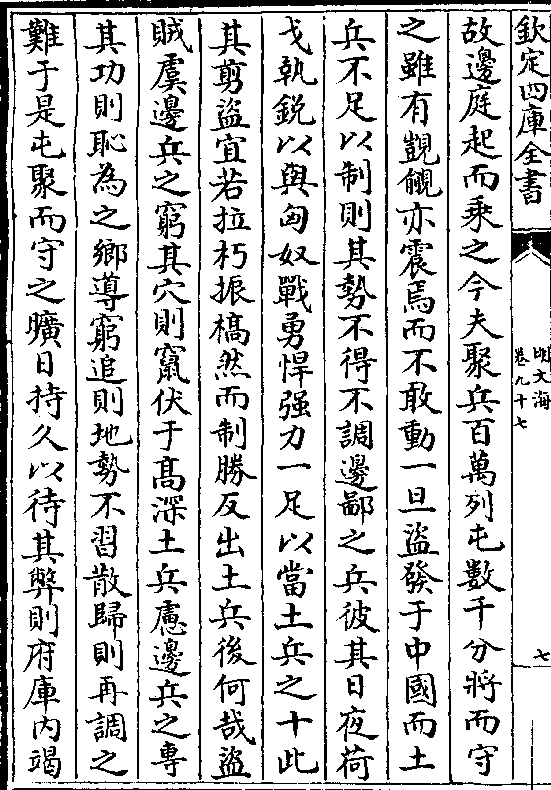 欽定四庫全書
明文海
卷九十七
七
故邊庭起而乘之今夫聚兵百萬列屯數千分將而守
之雖有覬覦亦震焉而不敢動一旦盜發于中國而土
兵不足以制則其勢不得不調邊鄙之兵彼其日夜荷
戈執銳以與匈奴戰勇悍强力一足以當土兵之十此
其剪盜宜若拉朽振槁然而制勝反出土兵後何哉盜
賊虞邊兵之窮其穴則竄伏于髙深土兵慮邊兵之專
其功則恥為之鄉導窮追則地勢不習散歸則再調之
難于是屯聚而守之曠日持久以待其弊則府庫内竭